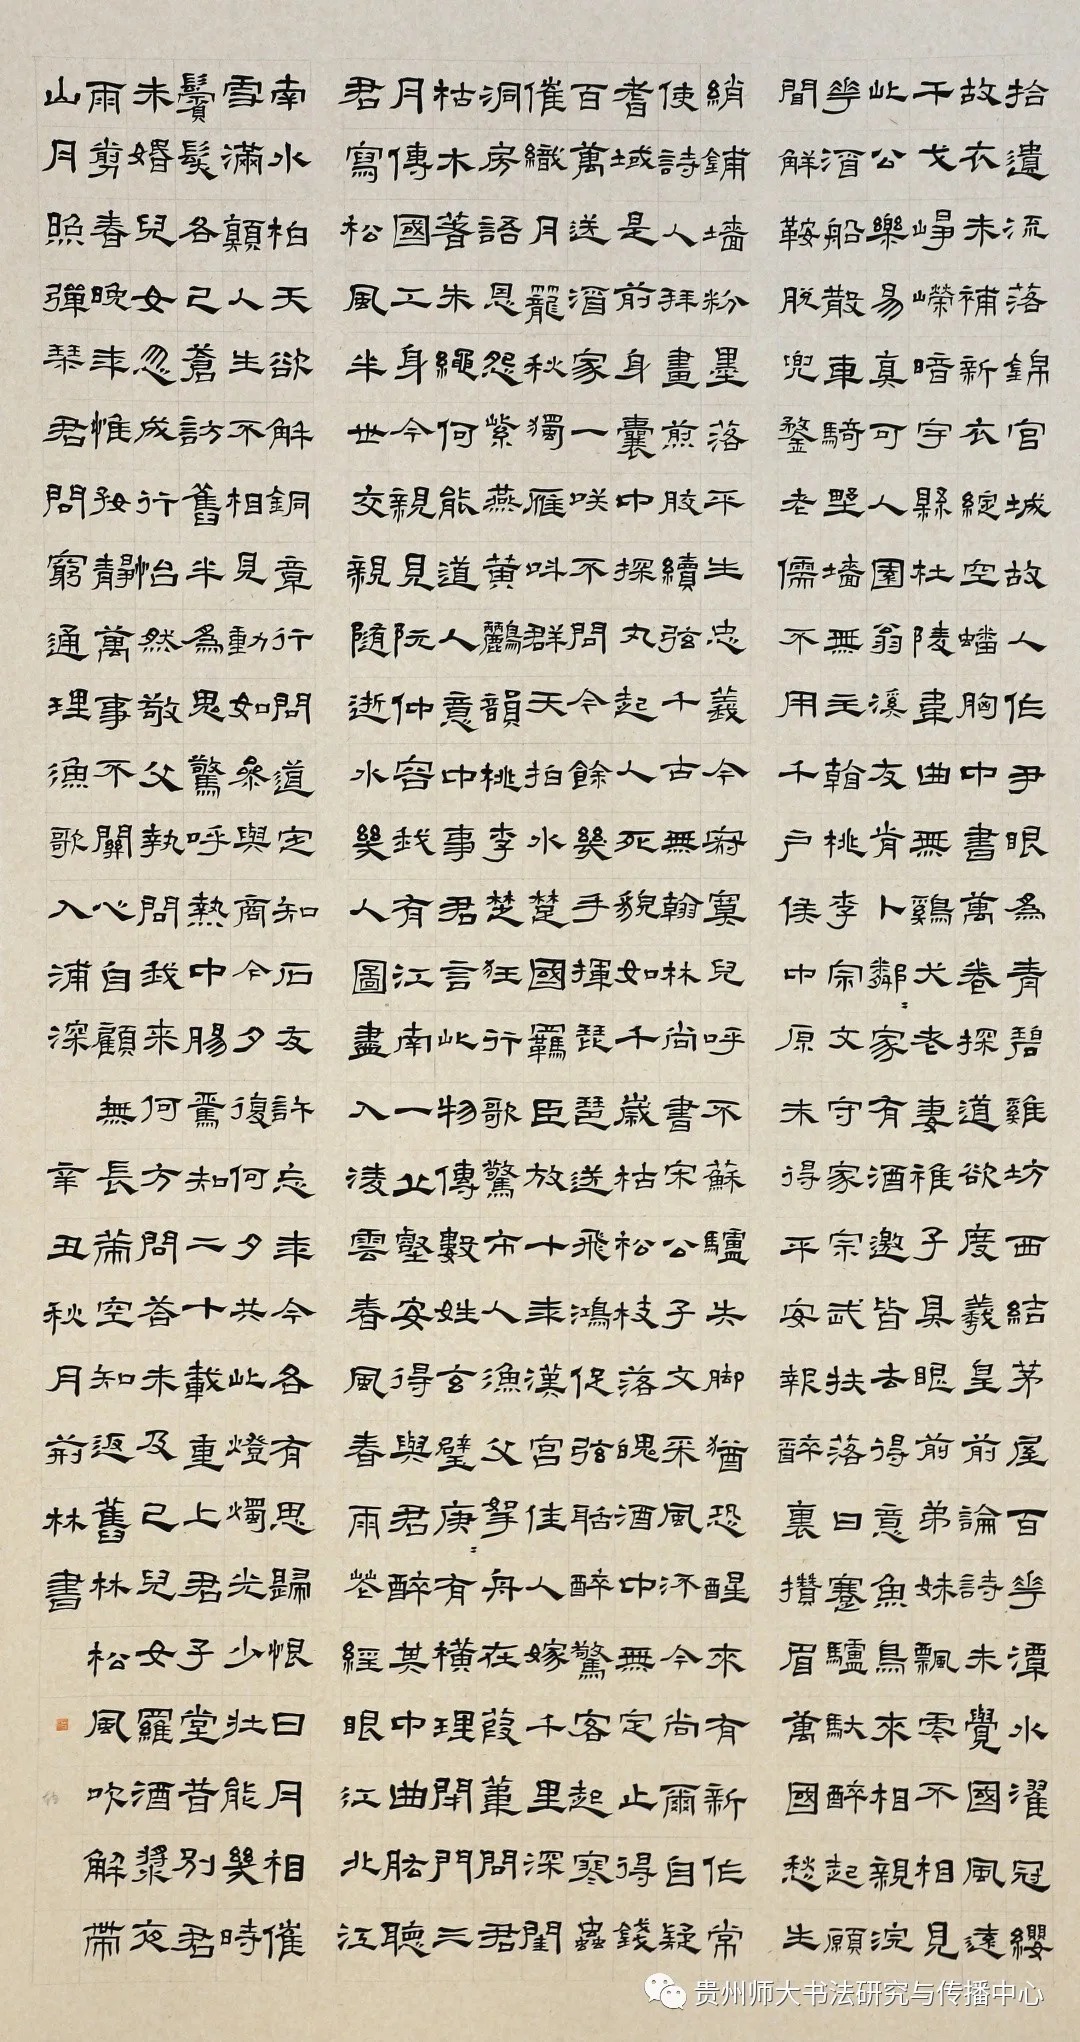 拾遺流落錦官城故人作尹眼為青碧雞坊西結茅屋百花潭水濯冠纓
故衣未補新衣綻空蟠胸中書萬卷探道欲度羲皇前論詩未覺國風遠
干戈崢嶸暗宇縣杜陵韋曲無雞犬老妻稚子具眼前弟妹飄零不相見
此公樂易真可人園翁溪友肯卜鄰〻家有酒邀皆去得意魚鳥來相親浣
花酒船散車騎野墻無主看桃李宗文守家宗武扶落日蹇驢馱醉起願
聞解鞍脫兜鍪老儒不用千戶侯中原未得平安報醉裏攢眉萬國愁生
綃鋪墻粉墨落平生忠義今寂寞兒呼不蘇驢失腳猶恐醒來有新作常
使詩人拜畫煎膠續弦千古無翰林尚書宋公子文采風流今尚爾自疑
耆域是前身囊中探丸起人死貌如千歲枯松枝落魄酒中無定止得錢
百萬送酒家一咲不問今餘幾手揮琵琶送飛鴻促弦聒醉驚客起寒蟲
催織月籠秋獨雁叫群天拍水楚國羈臣放十年漢宮佳人嫁千里深閨
洞房語恩怨紫燕黃鸝韻桃李楚狂行歌驚市人漁父拏舟在葭葦問君
枯木著朱繩何能道人意中事君言此物傳數姓玄璧庚〻有橫理閉門三
月傳國工身今親見阮仲容我有江南一丘壑安得與君醉其中曲肱聽
君寫松風半世交親隨逝水幾人圖畫入凌雲春風春雨花經眼江北江
南水柏天欲解銅章行問道定知石友許忘年今各有思歸恨日月相催
雪滿顛人生不相見動如參與商今夕復何夕共此燈燭光少壯能幾時
鬢髮各已蒼訪舊半為鬼驚呼熱中腸焉知二十載重上君子堂昔別君
未婚兒女忽成行怡然敬父執問我來何方問答未及已兒女羅酒漿夜
雨剪春晚年惟好靜萬事不關心自顧無長策空知返舊林松風吹解帶
山月照彈琴君問窮通理漁歌入浦深 辛丑秋月荊林書
贵州师大书法研究与传播中心